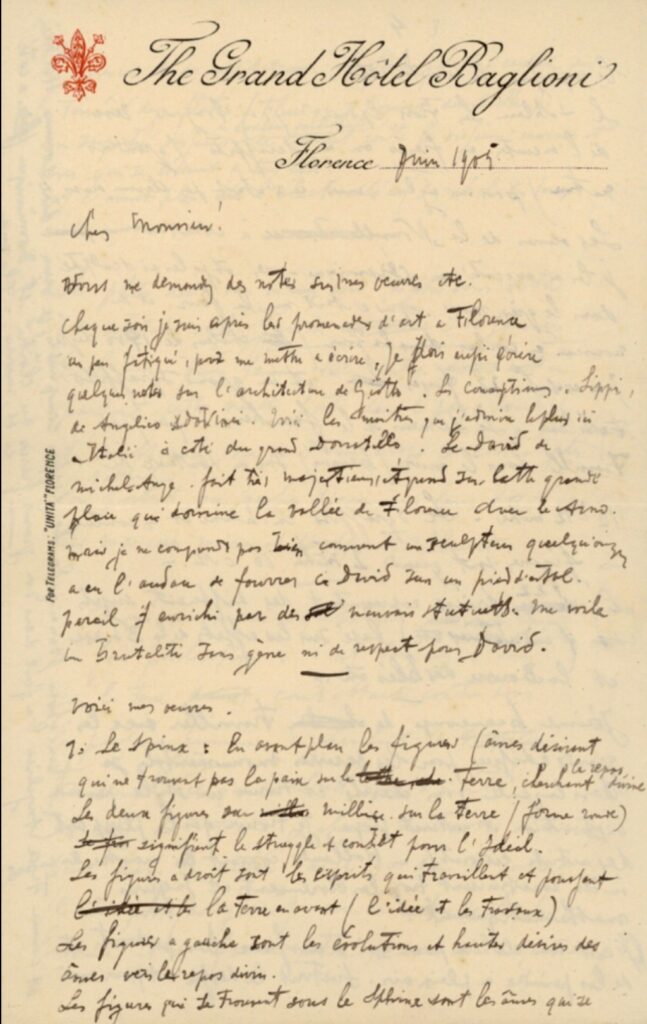 The Grand Hôtel Baglioni
Florence Juin 1905.
Cher Monsieur!
Vous me demandez des notes sur mes oeuvres etc.
Chaque soir je suis après les promenades d'art a Florence
un peu fatigué, pour me mettre a écrire. Je
quelques notes sur l'architecture de Giotto. Les conceptions. Lippi,
de Angelico & Voici les maitres que j'admire le plus ici
Italie à coté du grand Donatello. Le David de
michel-Ange. fait très majestieus et grand sur cette grande
place qui domine la vallée de Florence avec le Arno.
mais je ne comprends pas comment un sculpteur quelconque
a eu l'audace de fourrer ce David sur un piedestal.
pareil & enrichi par des mauvais statuetts. me voila
une Brutalité sans gêne ni de respect pour David.
FOR TELEGRAMS: "UNITA" FLORENCE
Voici mes oeuvres.
1) Le Spinx: En avant plan les figures (âmes désirent
qui ne trouvent pas la paix sur la Terre, cherchent le repos divine
Les deux figures au milieu. sur la Terre (forme ronde)
signifient le struggle & combat pour l'Idéal.
Les figures a droit sont les esprits qui travaillent et poussent
l'idée et les la Terre en avant (l'idée et les Travaux)
Les figures a gauche sont les évolutions et hautes désires des
âmes vers le repos divin.
Les figures qui se trouvent sous le Sphinx sont les âmes qui se